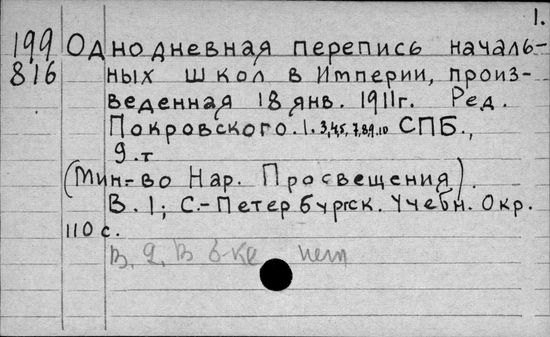 1.
199 Однодневная перепись началь-
816 ных школ в Империи, произ-
веденная 18 янв. 1911г. Ред.
Покровского. 1. 3,4,5, 7,8,9,10 СПБ.,
9.т
(Мин-во Нар. Просвещения).
В. 1; С.-Петербургск. Учебн. Окр.
110 с.
В. 2, В б-ке нет